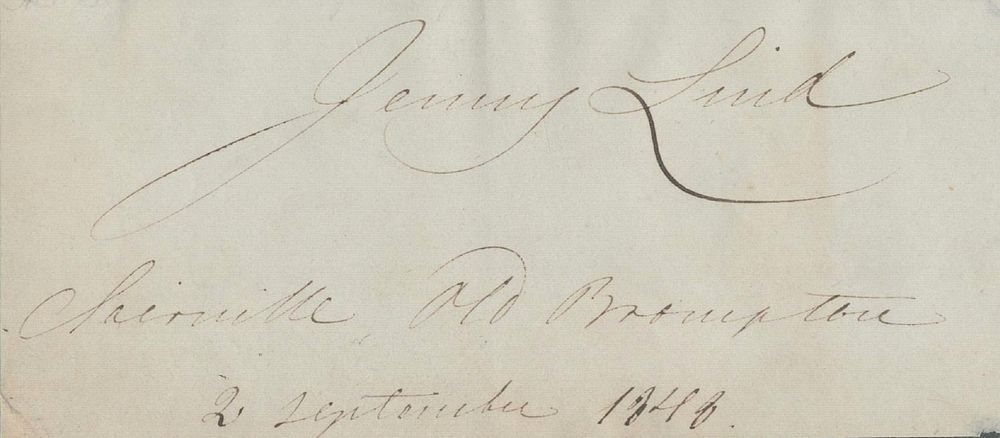 Jenny Lind
Clairville, Old Brompton
2 september 1848